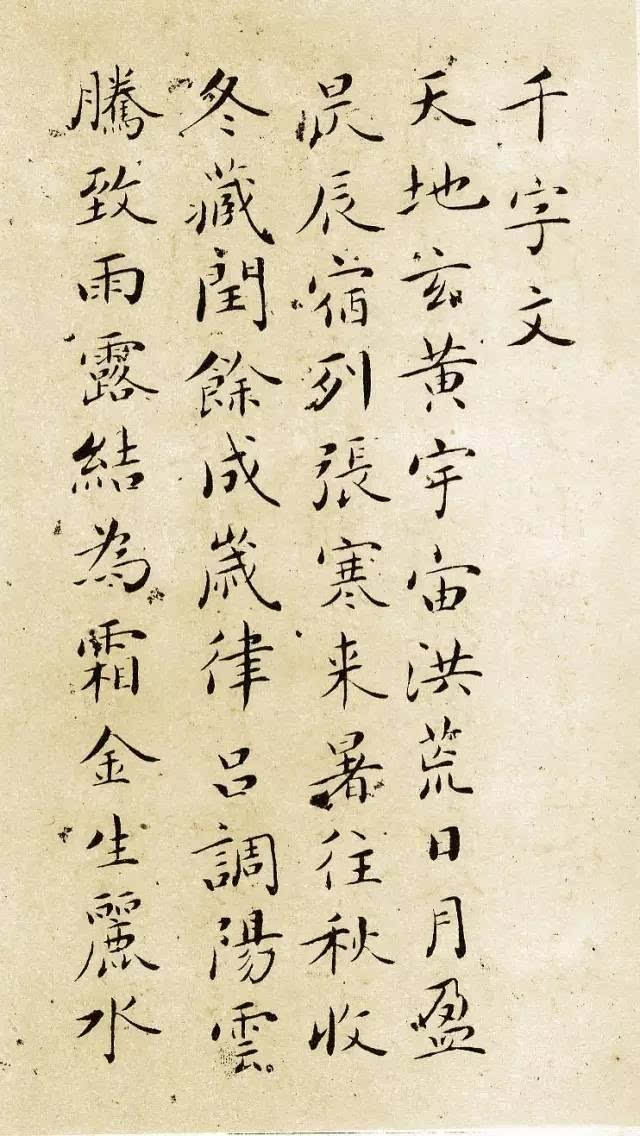 千字文
天地玄黄宇宙洪荒日月盈
昃辰宿列張寒来暑往秋收
冬藏閏餘成歲律吕調陽雲
騰致雨露結為霜金生麗水